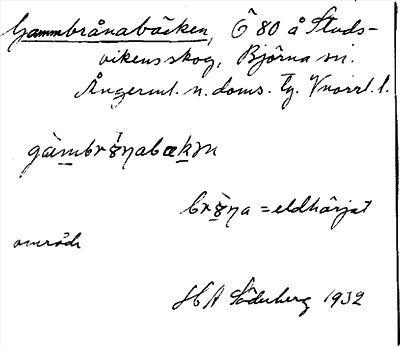 Gammbrånabäcken, Ö 80 å Studs-
vikens skog, Björna sn.
Ångerml. n. doms. tg. Vnorrl. l.
gàmbrø̀nabækən
brø̀na = eldhärjat
område
H A Söderberg 1932